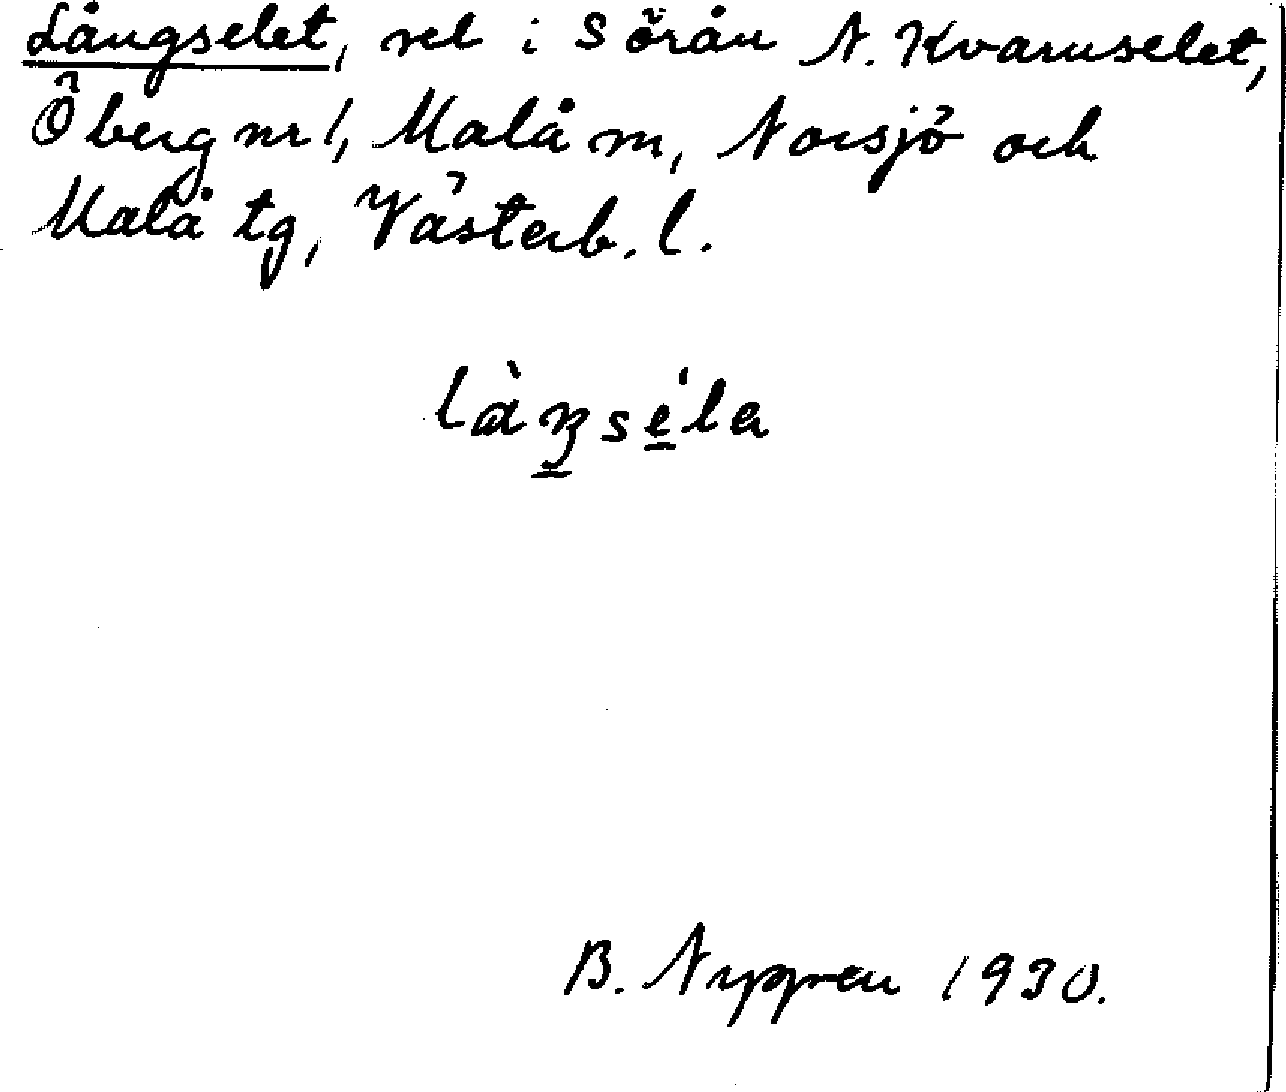 Långselet, sel i Sörån N. Kvarnselet,
Öberg nr 1, Malå sn, Norsjö och
Malå tg, Västerb. l.
B. Nygren 1930.